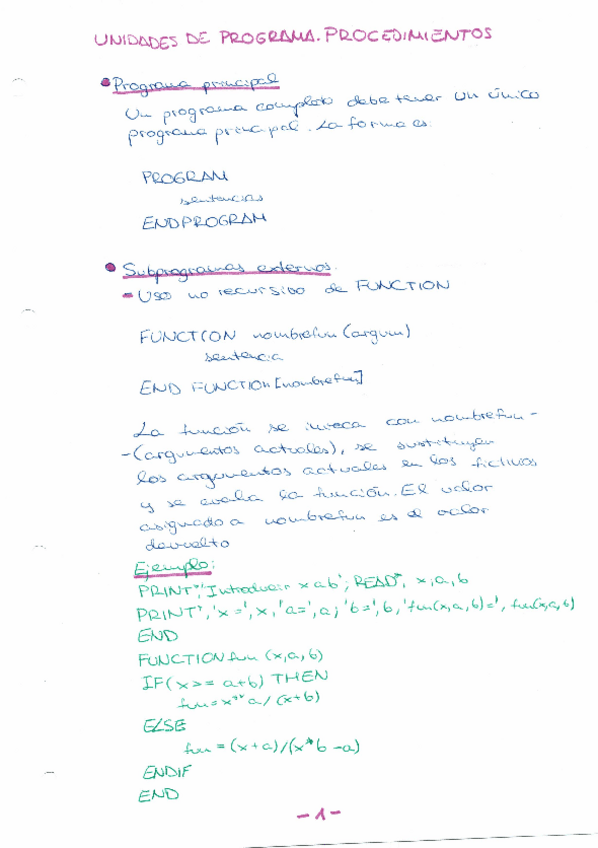 UNIDADES DE PROGRAMA. PROCEDIMIENTOS
Programa principal
Un programa completo debe tener un único
programa principal. La forma es
PROGRAM
sentencias
ENDPROGRAM
Subprogramas externos.
- Uso no recursivo de FUNCTION
FUNCTION nombrefun (argum)
sentencia
END FUNCTION [nombrefun]
La función se invoca con nombrefun-
-(argumentos actuales), se sustituyen
los argumentos actuales en los ficticios
y se evalua la función. El valor
asignado a nombrefun es el valor
devuelto
Ejemplo:
PRINT*,'Introducir x a b'; READ*, x,a,b
PRINT*,'x=',x,'a=',a;'b=',b,'fun(x,a,b)=', fun(x,a,b)
END
FUNCTION fun (x,a,b)
IF(x>= a+b) THEN
fun=x**a/(x+b)
ELSE
fun=(x+a)/(x*b-a)
ENDIF
END
-1-